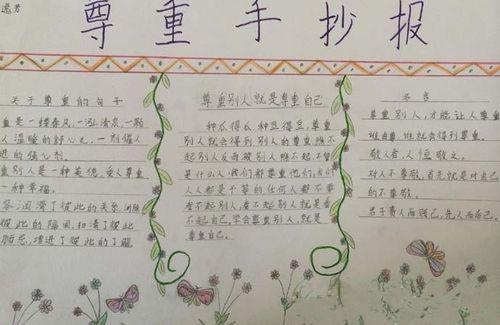 尊重手抄报
关于尊重的句子
重是一缕春风,一泓清泉,一颗
人温暖的舒心之,一剂催人
进的强心剂。
重别人是一种美德,受人尊重
一种幸福。
容润滑了彼此的关系,消除
彼此的隔阂,扫清了彼此
顾忌,增进了彼此的了解
尊重别人就是尊重自己
种瓜得瓜,种豆得豆,尊重
别人就会得到别人的尊重,瞧不
起别人反而被别人瞧不起,不管
是什么人,我们都尊重他们,因为人
人都是平等的,任何人都不要
看不起别人,看不起别人就是看
不起自己,学会尊重别人,就是
尊重自己。
名言
尊重别人,才能让人尊重
谁自尊,谁就会得到尊重。
敬人者,人恒敬之。
对人不尊敬,首先就是对自己
的不尊敬。
君子贵人而贱己,先人而后己。